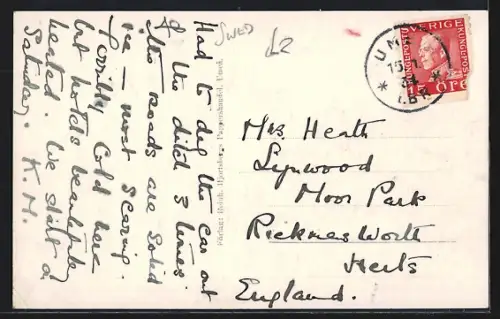 Had to dig the car out
of the ditch 3 times.
The roads are solid
ice — most scaring.
Terribly cold here
but hotels beautifully
heated. We start on
Saturday. K.M.
SWED
£2
Förlag: Reinh. Hjortsbergs Pappershandel, Umeå.
UME
15
34
LBR
SVERIGE
KUNGEPOST
KUNGEPOST
15 ÖRE
Mrs. Heath
Lynwood
Moor Park
Rickmasworth
Herts
England.